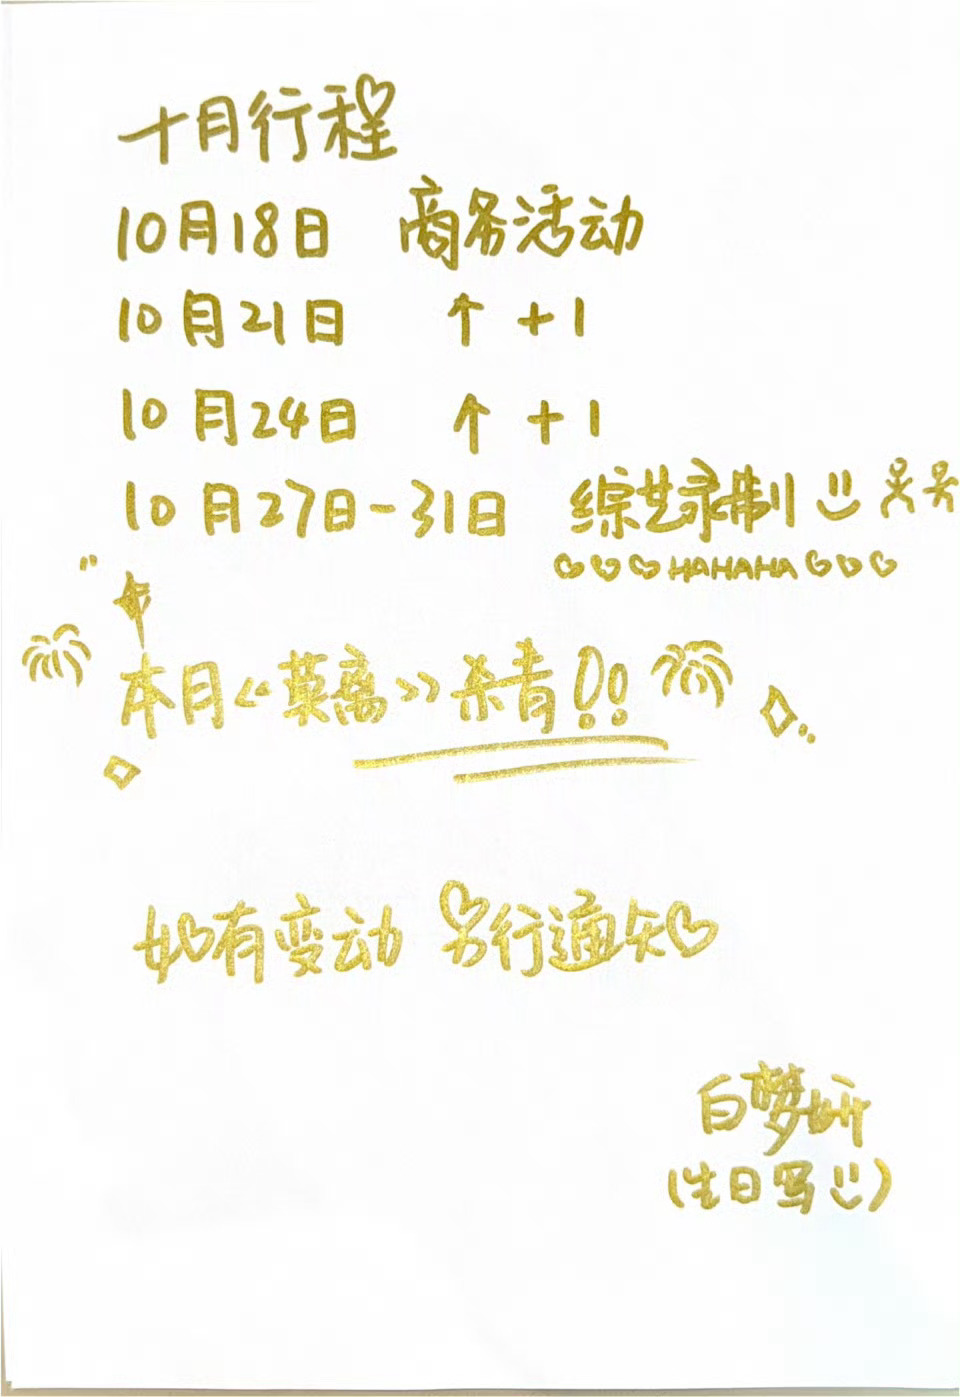 十月行程
10月18日 商务活动
10月21日 ↑ +1
10月24日 ↑ +1
10月27日-31日 综艺录制
HAHAHA
本月《莫离》杀青!!
如有变动 另行通知
白梦妍
(生日写)